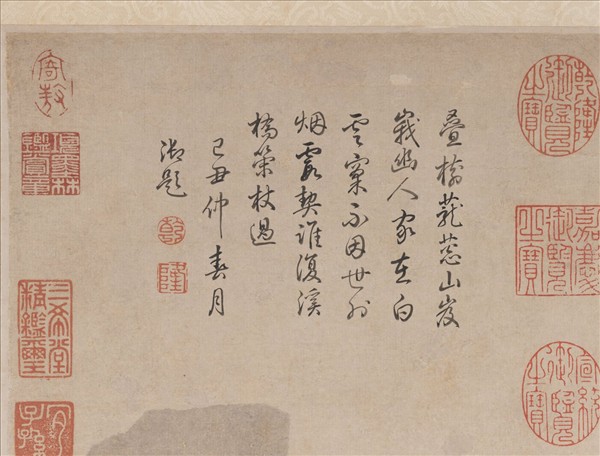 乾隆御覽之寶
嘉慶御覽之寶
宣統御覽之寶
疊樹蘢葱山岌
峩幽人家在白
雲窠不因世外
烟霞契誰復溪
橋策杖過
己丑仲春月
御題
乾
隆
項墨林鑑賞章
三希堂精鑑璽
宜子孫